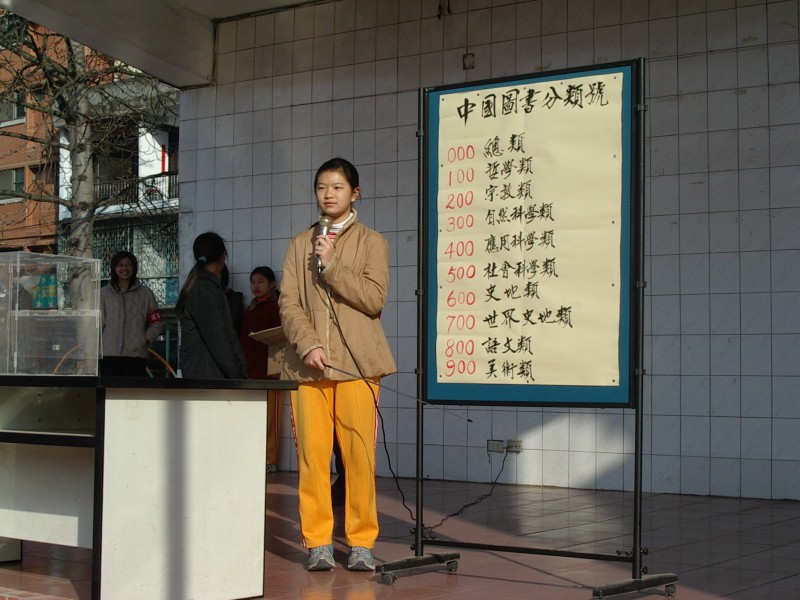 中國圖書分類號
000 總類
100 哲學類
200 宗教類
300 自然科學類
400 應用科學類
500 社會科學類
600 史地類
700 世界史地類
800 語文類
900 美術類